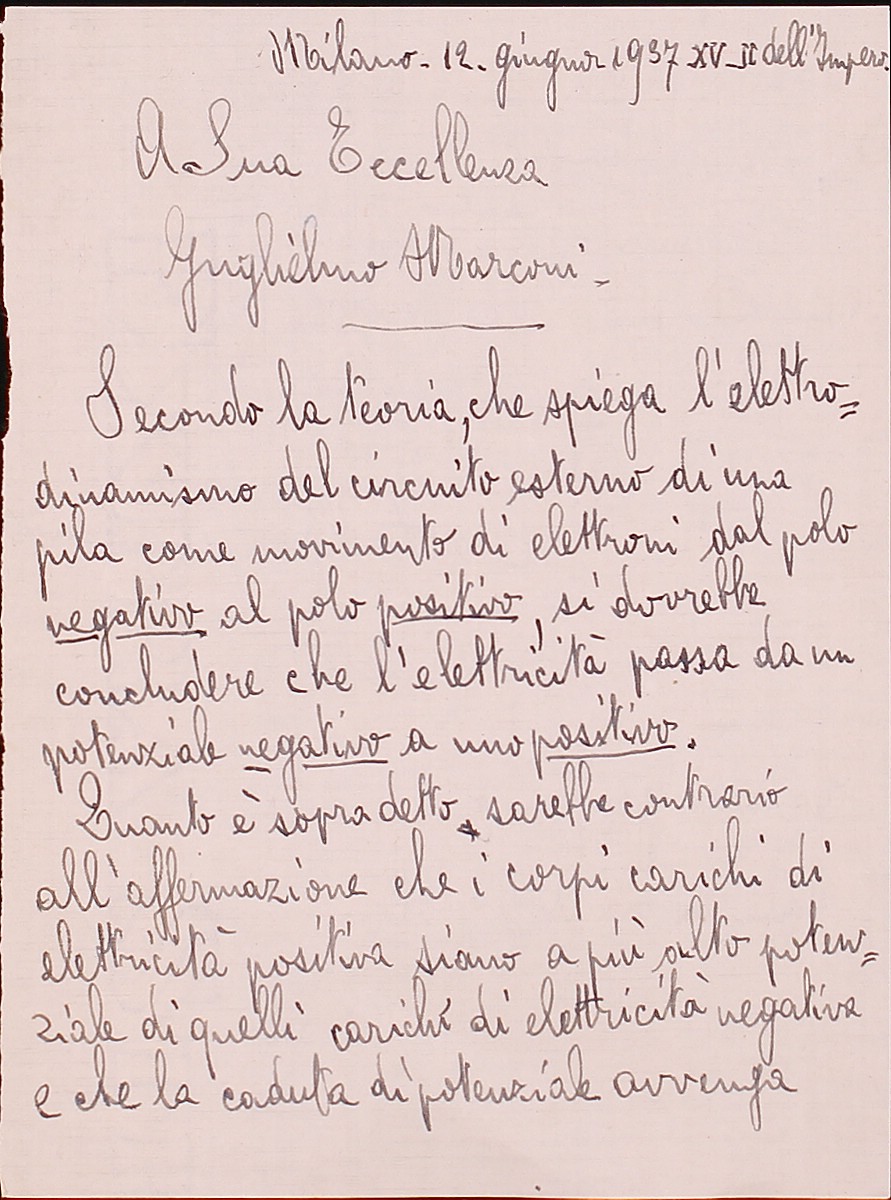 Milano - 12. giugno 1937 XV - II dell'Impero.
A Sua Eccellenza
Guglielmo Marconi -
Secondo la teoria, che spiega l'elettro=
dinamismo del circuito esterno di una
pila come movimento di elettroni dal polo
negativo al polo positivo, si dovrebbe
concludere che l'elettricità passa da un
potenziale negativo a uno positivo.
Quanto è sopra detto, sarebbe contrario
all'affermazione che i corpi carichi di
elettricità positiva siano a più alto poten=
ziale di quelli carichi di elettricità negativa
e che la caduta di potenziale avvenga